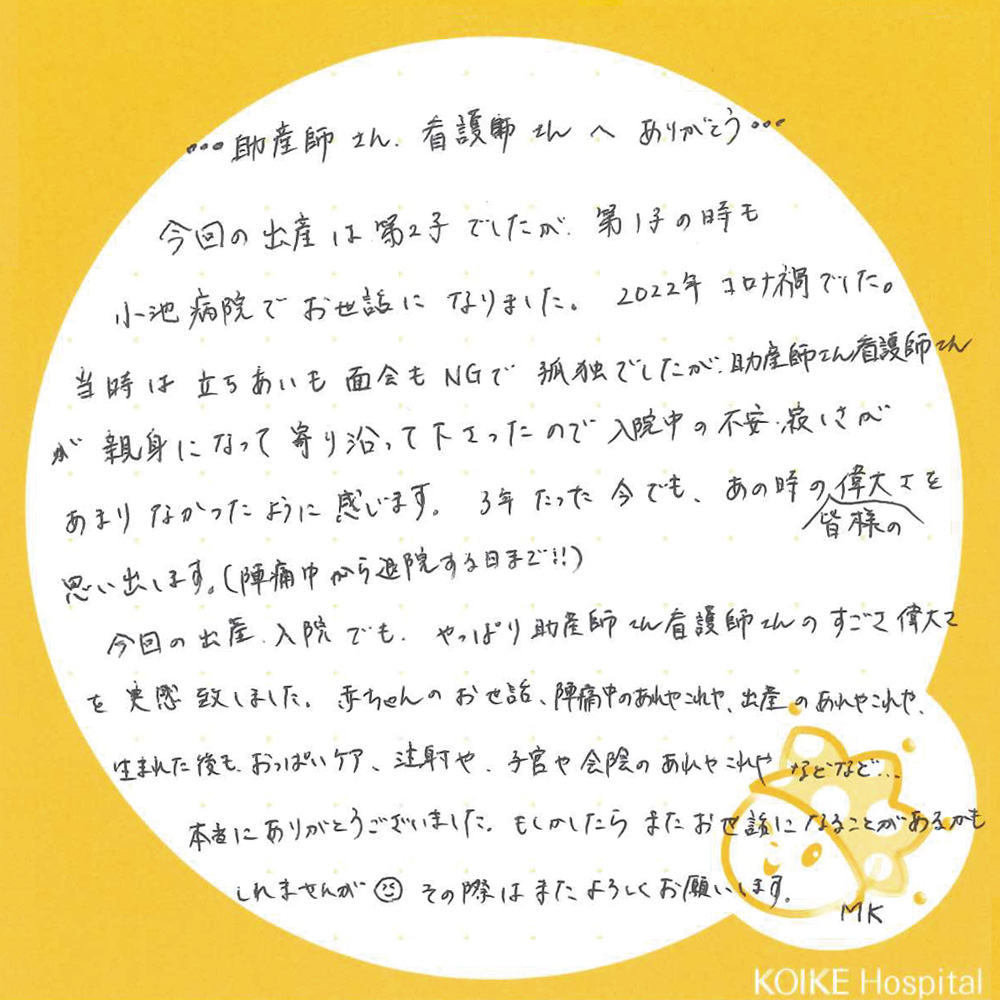 •••助産師さん、看護師さんへ ありがとう•••
今回の出産は第2子でしたが、第1子の時も
小池病院でお世話になりました。 2022年 コロナ禍でした。
当時は立ちあいも面会もNGで孤独でしたが、助産師さん看護師さん
が親身になって寄り沿って下さったので入院中の不安・寂しさが
あまりなかったように感じます。 3年たった今でも、あの時の偉大さを
皆様の
思い出します。(陣痛中から退院する日まで!!)
今回の出産、入院でも、やっぱり助産師さん看護師さんのすごさ偉大さ
を実感致しました。赤ちゃんのお世話、陣痛中のあれやこれや、出産のあれやこれや、
生まれた後も、おっぱいケア、注射や、子宮や会陰のあれやこれや などなど...
本当にありがとうございました。もしかしたらまたお世話になることがあるかも
しれませんが☺その際はまたよろしくお願いします。
MK
KOIKE Hospital